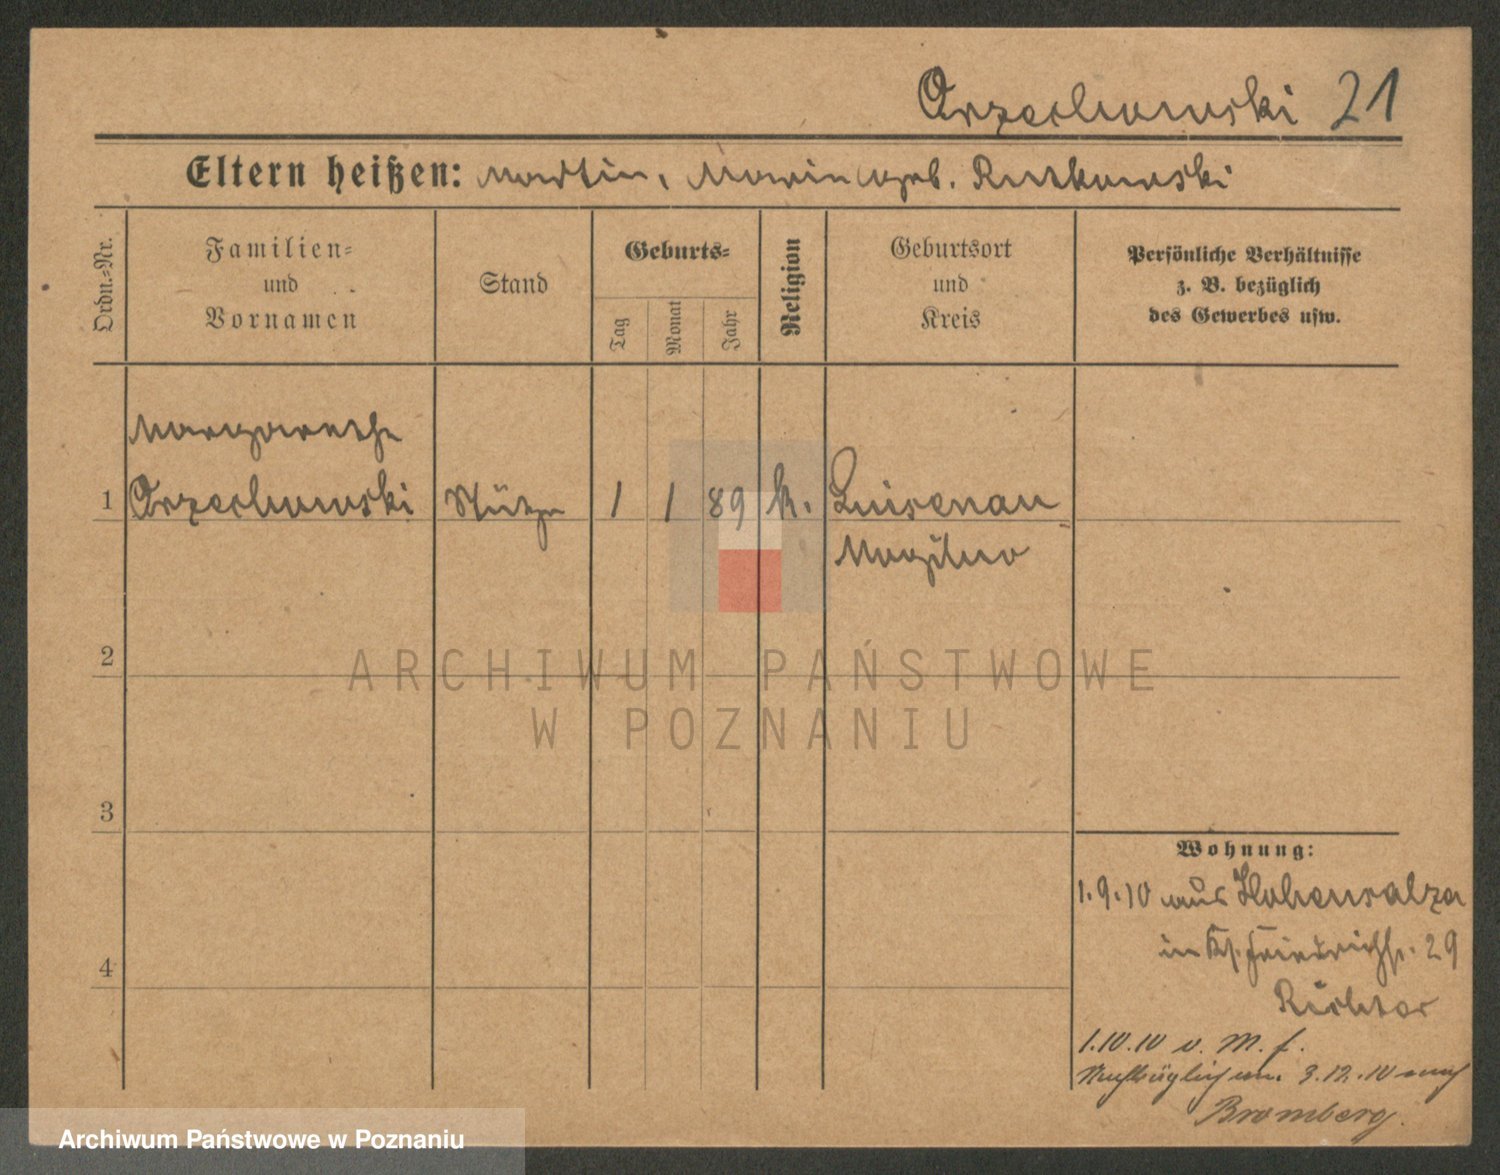 Orzechowski 21
Eltern heißen: Martin, Maria geb. Rutkowski
Ordn.-Nr.
Familien-
und
Vornamen
Stand
Geburts-
Tag
Monat
Jahr
Religion
Geburtsort
und
Kreis
Persönliche Verhältnisse
z. B. bezüglich
des Gewerbes usw.
Margarethe
1 Orzechowski Stütze 1 1 89 k. Luisenau
Mogilno
2
ARCHIWUM PAŃSTWOWE
W POZNANIU
3
Wohnung:
1.9.10 aus Hohensalza
in Friedrichstr. 29
4
Richter
1.10.10 v. M. f.
Nachträglich um. 3.12.10 nach
Bromberg.
Archiwum Państwowe w Poznaniu